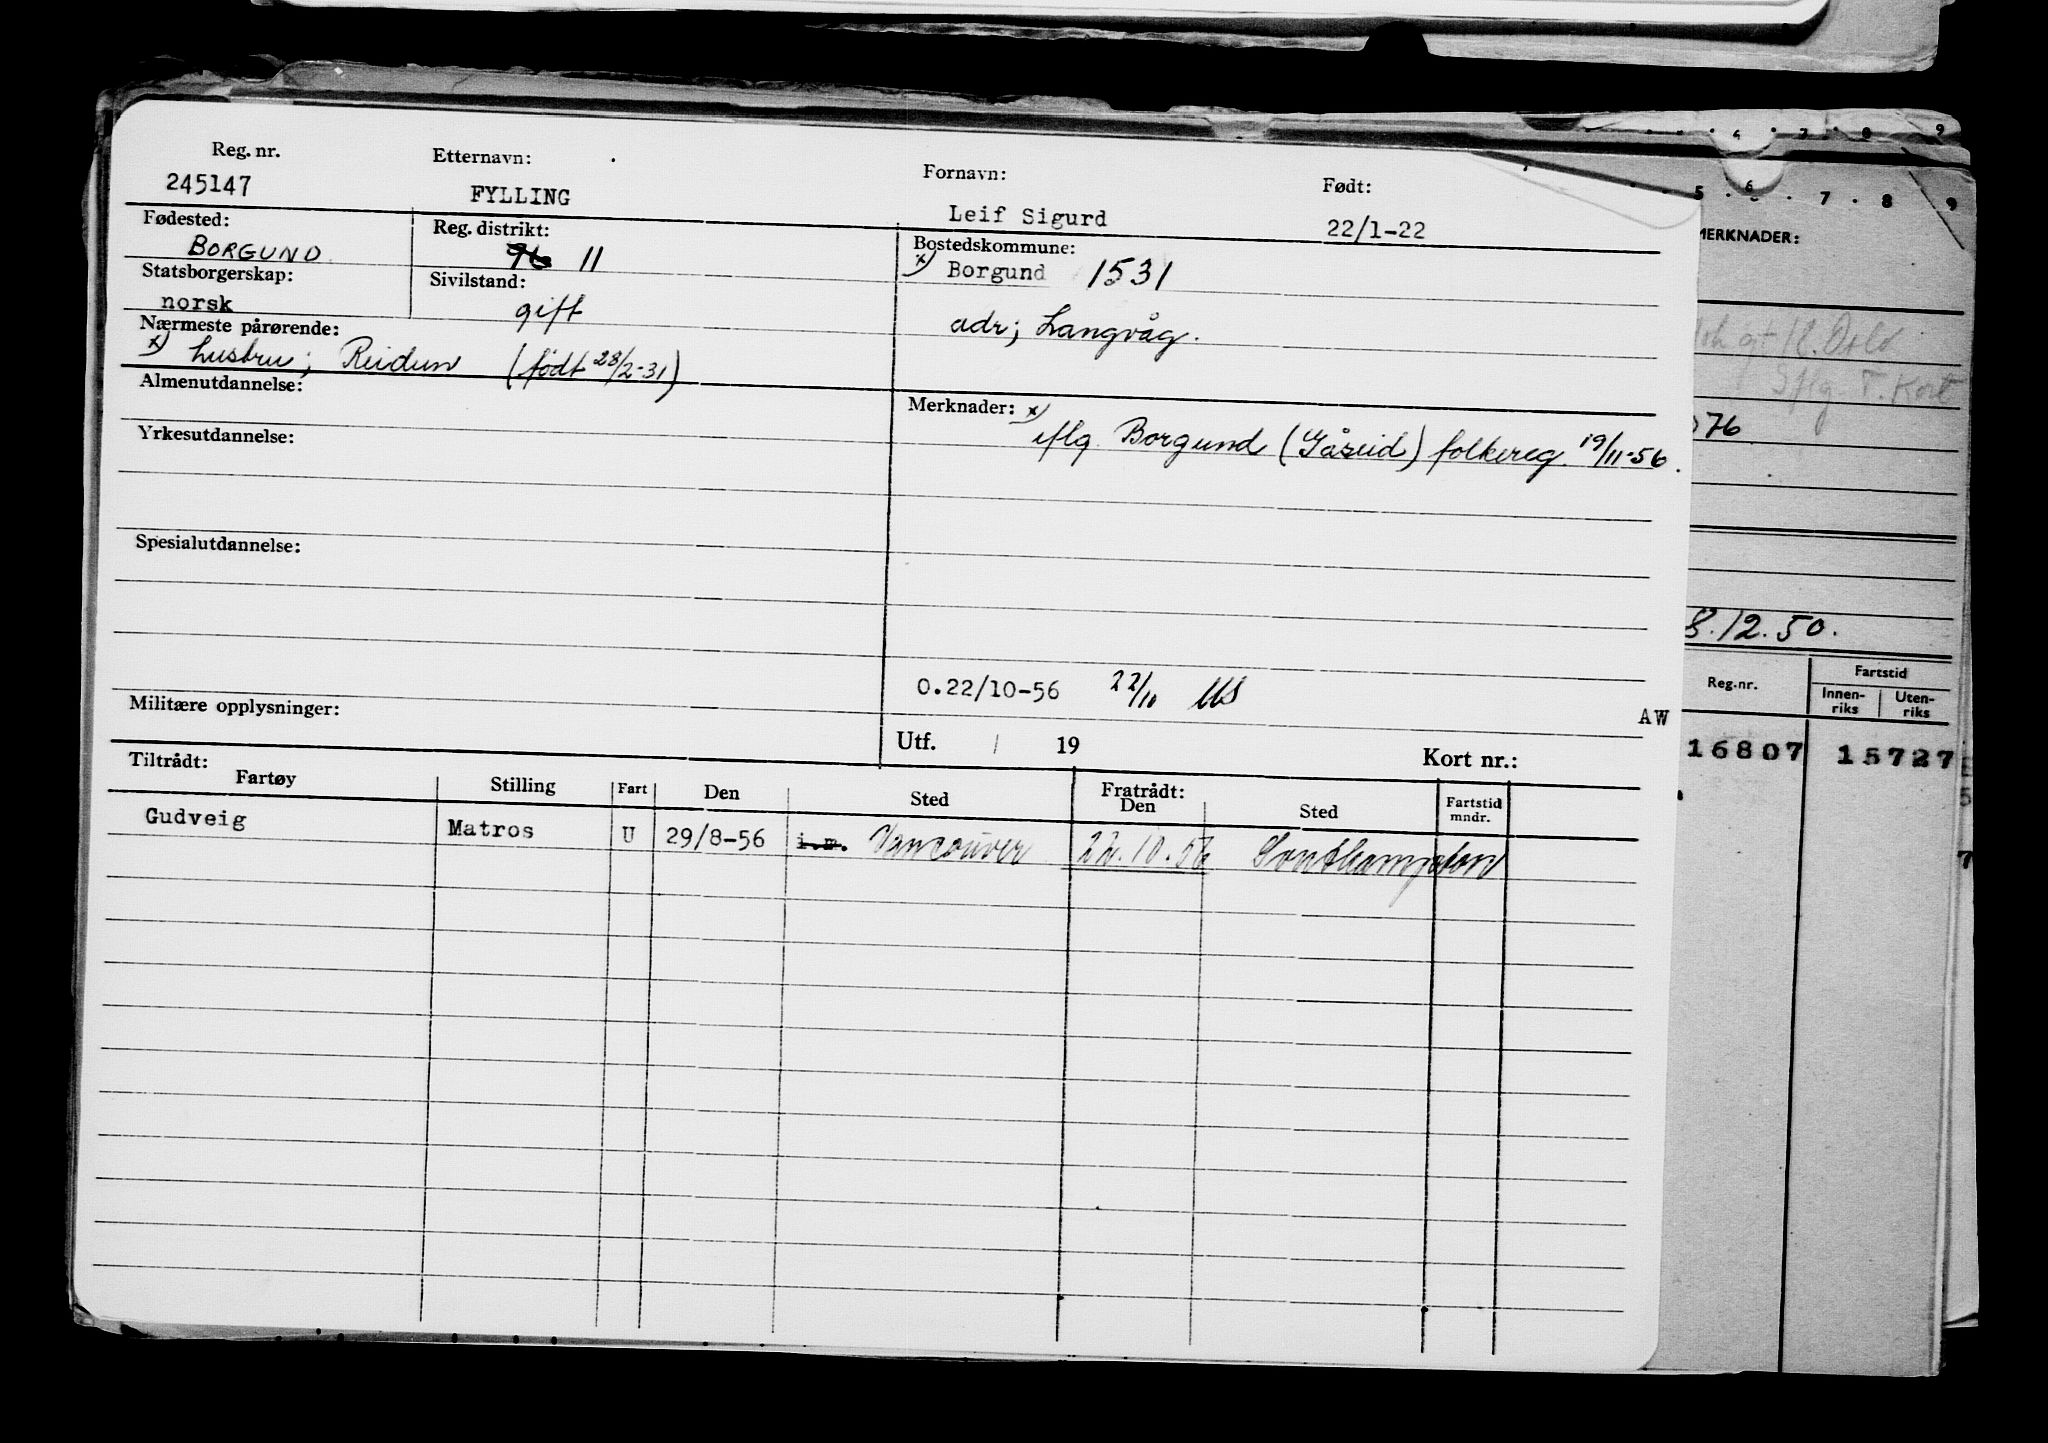 4 · 7 · 8 9
5 · 6 · 7 · 8 9
Reg. nr. Etternavn: Fornavn: Født:
245147 FYLLING Leif Sigurd 22/1-22
Fødested: Reg. distrikt: Bostedskommune:
BORGUND 96 11 x) Borgund 1531
Statsborgerskap: Sivilstand:
norsk gift adr; Langvåg.
Nærmeste pårørende:
x) hustru; Reidun (født 28/2-31)
Almenutdannelse: Merknader: x)
iflg. Borgund (Gåseid) folkereg. 19/11-56.
Yrkesutdannelse:
Spesialutdannelse:
0.22/10-56 22/10
Militære opplysninger: AW
Utf. / 19 Kort nr.:
Tiltrådt: Fratrådt:
Fartøy Stilling Fart Den Sted Den Sted Fartstid mndr.
Gudveig Matros U 29/8-56 i.m. Vancouver 22.10.56 Southampton
MERKNADER:
gt 18. Oslo
Iflg T. Kort
76
8.12.50.
Reg.nr. Fartstid
Innen-riks Uten-riks
16807 15727
7